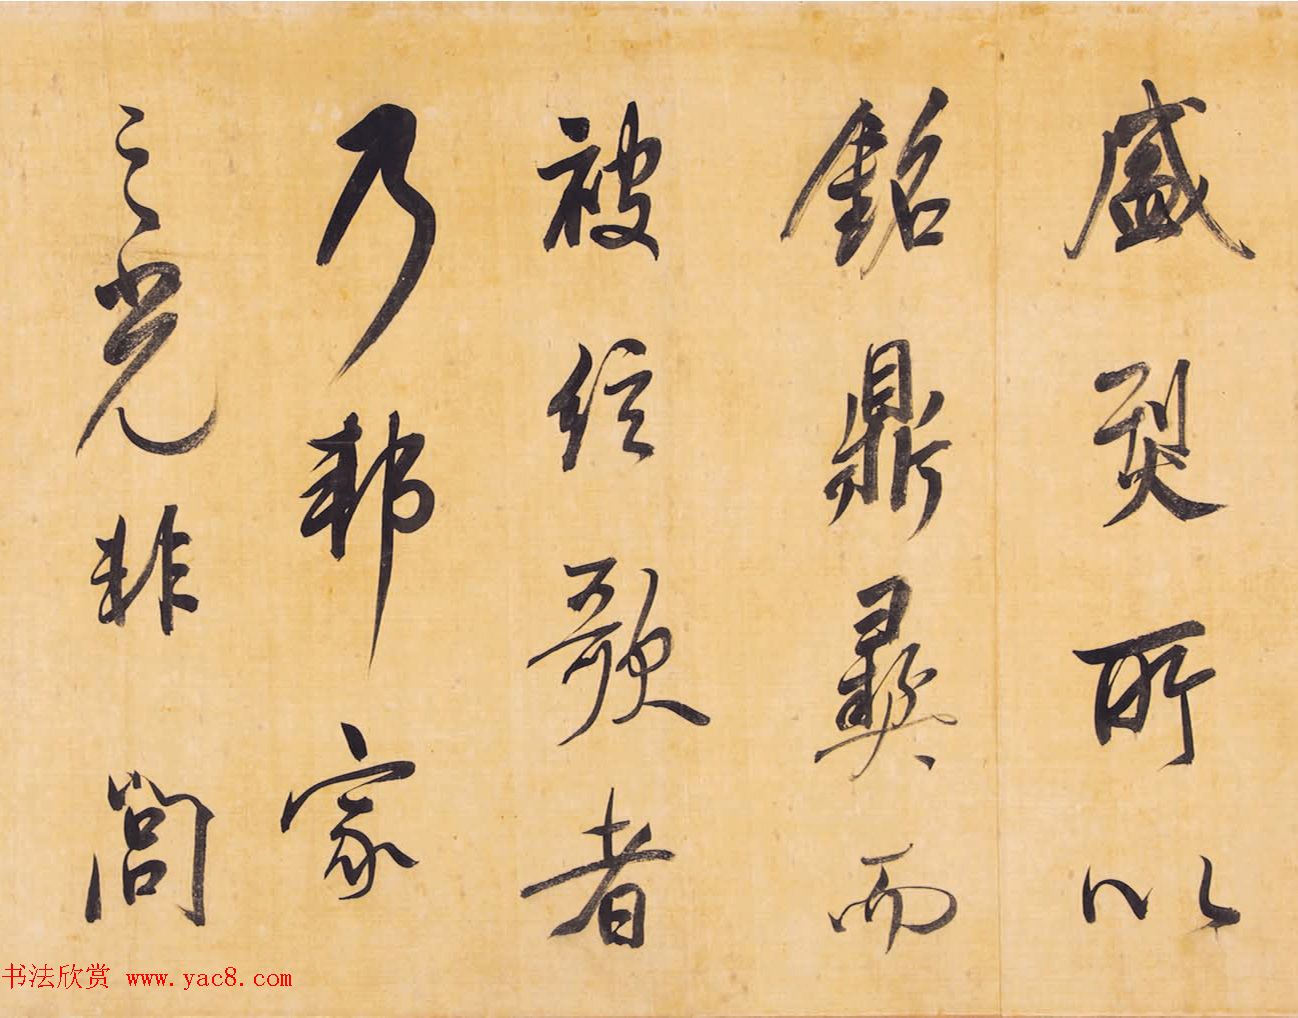 盛烈所以
銘鼎彝而
被弦歌者
乃邦家
之光非閭
书法欣赏 www.yac8.com